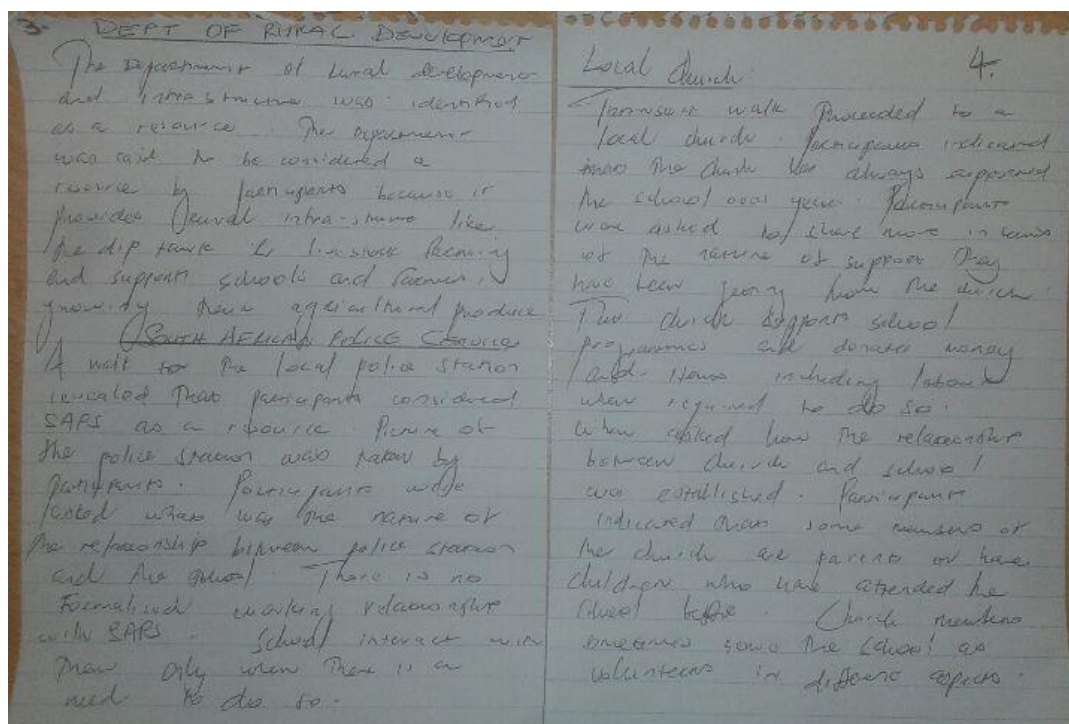 3. DEPT OF RURAL DEVELOPMENT
The Department of rural development
and infrastructure was identified
as a resource. The Department
was said to be considered a
resource by participants because it
provides rural infrastructure like
the dip tank for livestock farming
and supports schools and farmers in
growing their agricultural produce
SOUTH AFRICAN POLICE SERVICE
A walk to the local police station
revealed that participants considered
SAPS as a resource. Picture of
the police station was taken by
participants. Participants were
asked what was the nature of
the relationship between police station
and the school. There is no
Formalised working relationship
with SAPS. School interact with
them only when there is a
need to do so.
4.
Local Church
Transect walk proceeded to a
local church. Participants indicated
that the church has always supported
the school over years. Participants
were asked to share more in terms
of the nature of support they
have been getting from the church.
The church supports school
programmes and donates money
and items including labour
when required to do so.
When asked how the relationship
between church and school
was established. Participants
indicated that some members of
the church are parents or have
children who have attended the
school before. Church members
sometimes serve the school as
volunteers in different aspects.